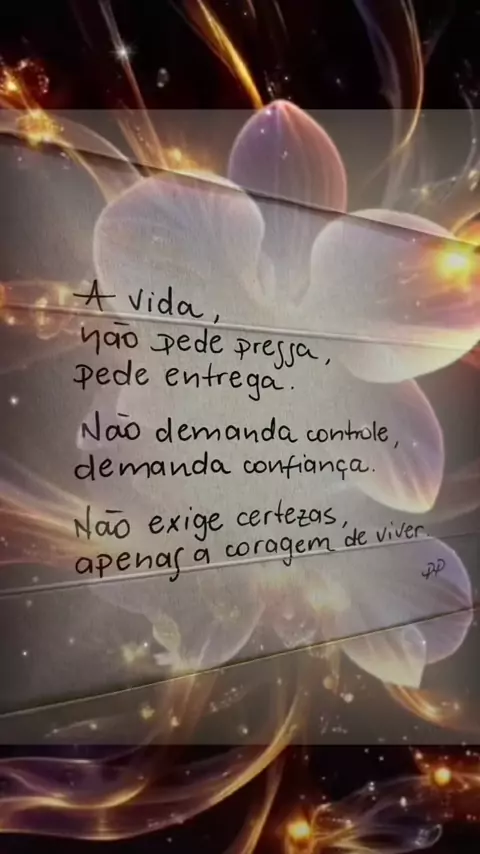 A vida,
não pede pressa,
pede entrega.
Não demanda controle,
demanda confiança.
Não exige certezas,
apenas a coragem de viver.
PP